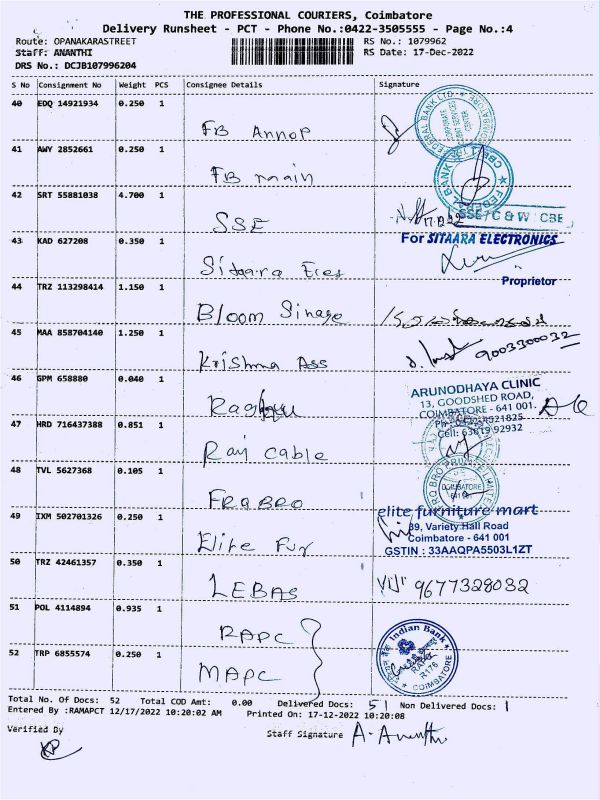 THE PROFESSIONAL COURIERS, Coimbatore
Delivery Runsheet - PCT - Phone No.:0422-3505555 - Page No.:4
Route: OPANAKARASTREET RS No.: 1079962
Staff: ANANTHI RS Date: 17-Dec-2022
DRS No.: DCJB107996204
S No Consignment No Weight PCS Consignee Details Signature
40 EDQ 14921934 0.250 1
FB Annop
41 AWY 2852661 0.250 1
FB main
42 SRT 55881038 4.700 1
SSE
SSE/C & W/CBE
43 KAD 627208 0.350 1
For SITAARA ELECTRONICS
Sitaara Eles
Proprietor
44 TRZ 113298414 1.150 1
Bloom Sinage
45 MAA 858704140 1.250 1
Krishna Ass 9003300032
46 GPM 658880 0.040 1
ARUNODHAYA CLINIC
13, GOODSHED ROAD,
COIMBATORE - 641 001.
47 HRD 716437388 0.851 1
Cell: 63819 92932
Raj Cable
48 TVL 5627368 0.105 1
FRABRO
49 IXM 502701326 0.250 1
elite furniture mart
89, Variety Hall Road
Coimbatore - 641 001
GSTIN : 33AAQPA5503L1ZT
Elite Fur
50 TRZ 42461357 0.350 1
LEBAS VIJI 9677328032
51 POL 4114894 0.935 1
RAPC
Indian Bank
52 TRP 6855574 0.250 1
MAPC
COIMBATORE
Total No. Of Docs: 52 Total COD Amt: 0.00 Delivered Docs: 51 Non Delivered Docs: 1
Entered By :RAMAPCT 12/17/2022 10:20:02 AM Printed On: 17-12-2022 10:20:08
Verified By Staff Signature A. Ananthi